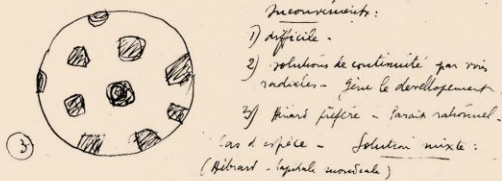 Inconvénients:
1) difficile -
2) solutions de continuité par voies
radixées - Gêne le developpement
3) préfère - Parait rationnel -
Cas d'espèce - Solution mixte :
(Hébrard - Capitale mondiale)
3